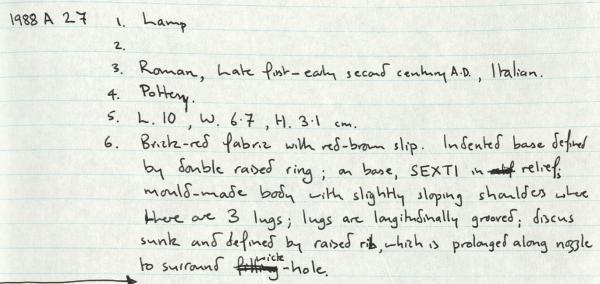 1988 A 27 1. Lamp
2.
3. Roman, Late first-early second century A.D., Italian.
4. Pottery.
5. L. 10, W. 6.7, H. 3.1 cm.
6. Brick-red fabric with red-brown slip. Indented base defined
by double raised ring; on base, SEXTI in relief;
mould-made body with slightly sloping shoulders where
there are 3 lugs; lugs are longitudinally grooved; discus
sunk and defined by raised rib, which is prolonged along nozzle
to surround wick-hole.